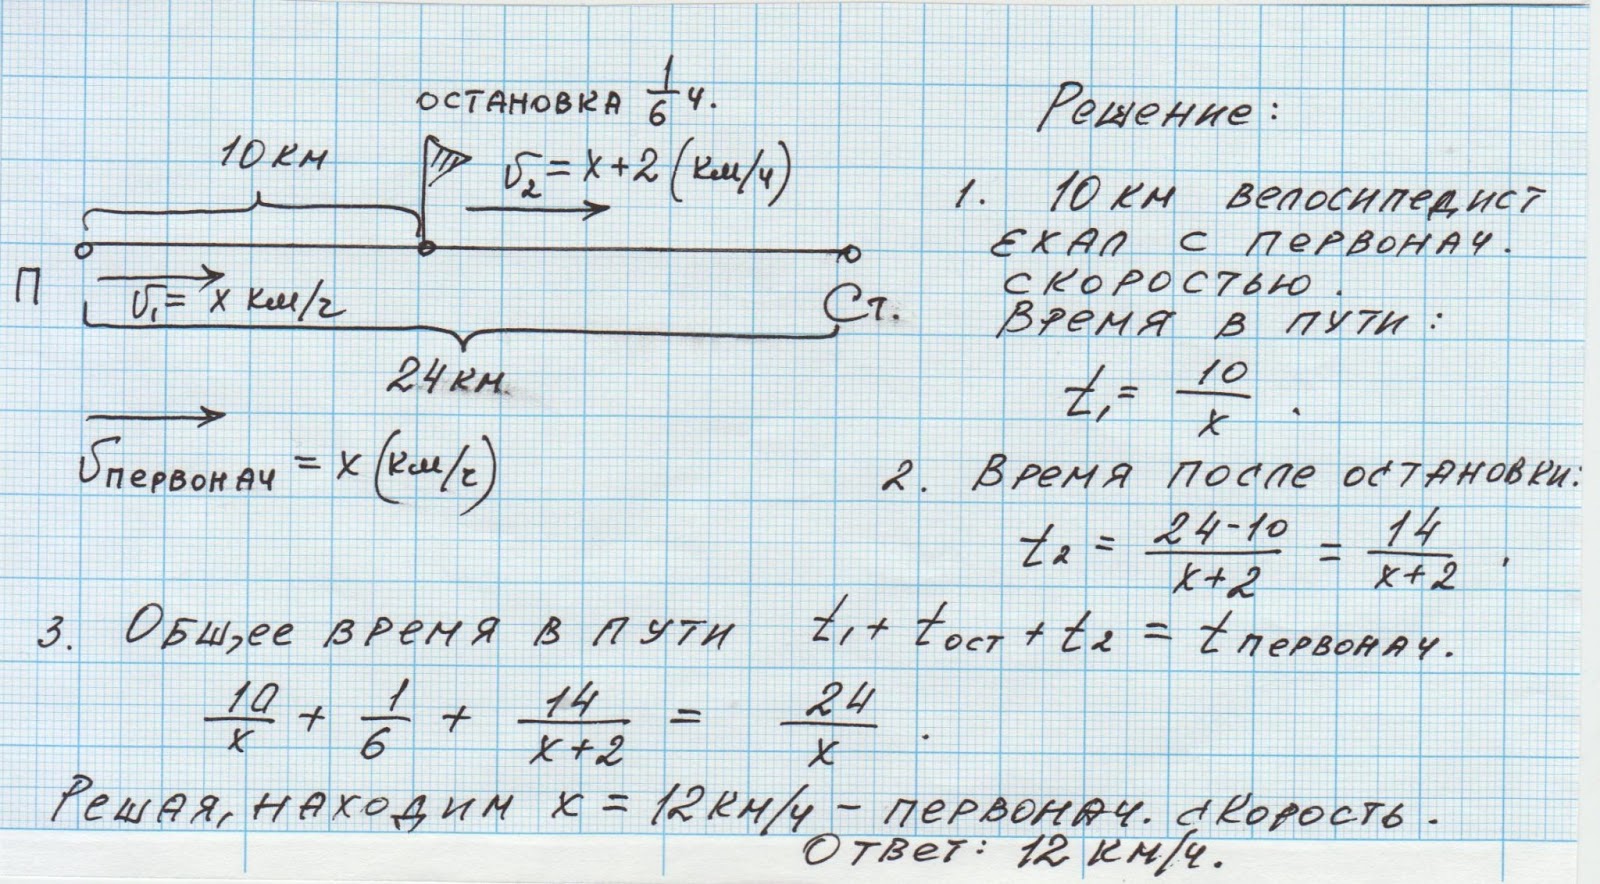 остановка 1/6 ч.
10 км
v₂ = x + 2 (км/ч)
П
v₁ = x км/ч
Ст.
24 км.
v первонач = x (км/ч)
Решение:
1. 10 км велосипедист
ехал с первонач.
скоростью.
Время в пути:
t₁ = 10/x.
2. Время после остановки:
t₂ = (24-10)/(x+2) = 14/(x+2).
3. Общее время в пути t₁ + t ост + t₂ = t первонач.
10/x + 1/6 + 14/(x+2) = 24/x.
Решая, находим x = 12 км/ч – первонач. скорость.
Ответ: 12 км/ч.